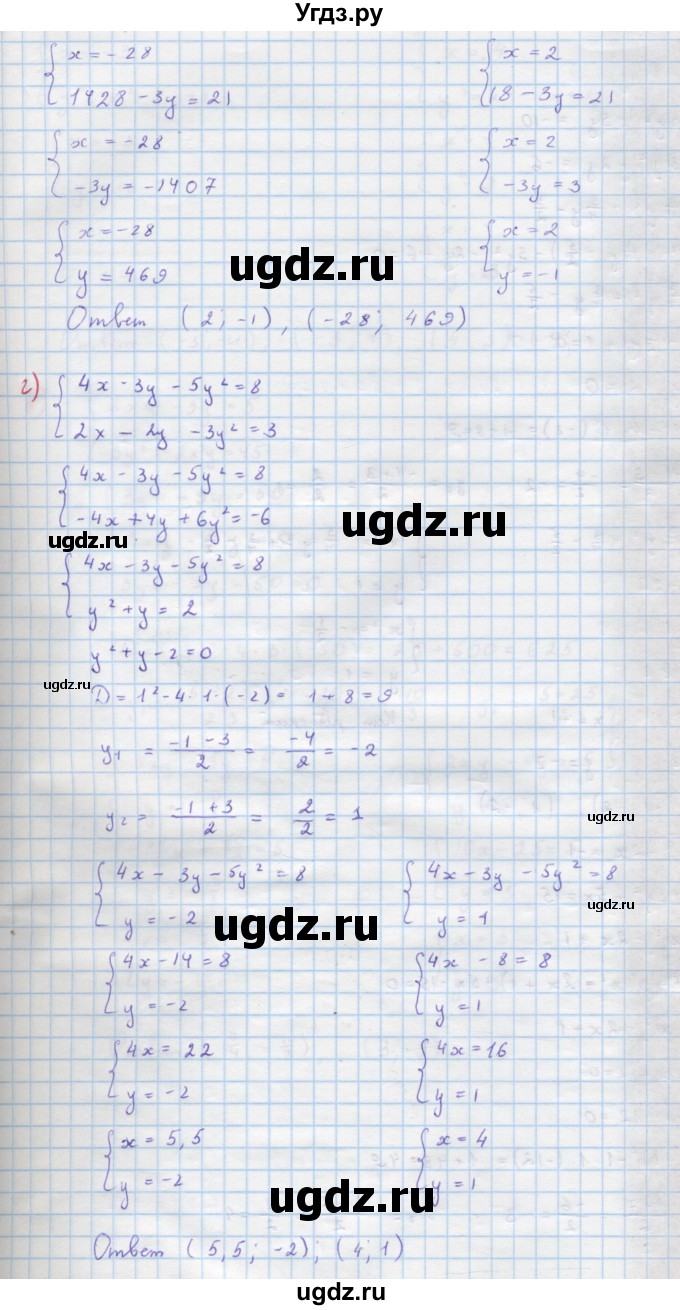 Угдз.ру
x = -28 x = 2
1428 - 3y = 21 18 - 3y = 21
x = -28 x = 2
-3y = -1407 -3y = 3
x = -28 x = 2
y = 469 y = -1
ugdz.ru
Ответ (2; -1), (-28; 469)
г) 4x - 3y - 5y² = 8
2x - 2y - 3y² = 3
4x - 3y - 5y² = 8
-4x + 4y + 6y² = -6
ugdz.ru
ugdz.ru
4x - 3y - 5y² = 8
y² + y = 2
y² + y - 2 = 0
ugdz.ru
D = 1² - 4 · 1 · (-2) = 1 + 8 = 9
y₁ = (-1 - 3)/2 = -4/2 = -2
y₂ = (-1 + 3)/2 = 2/2 = 1
ugdz.ru
4x - 3y - 5y² = 8 4x - 3y - 5y² = 8
ugdz.ru
y = -2 y = 1
ugdz.ru
4x - 14 = 8 4x - 8 = 8
y = -2 y = 1
4x = 22 4x = 16
y = -2 y = 1
x = 5,5 x = 4
y = -2 y = 1
ugdz.ru
Ответ (5,5; -2); (4; 1)
ugdz.ru